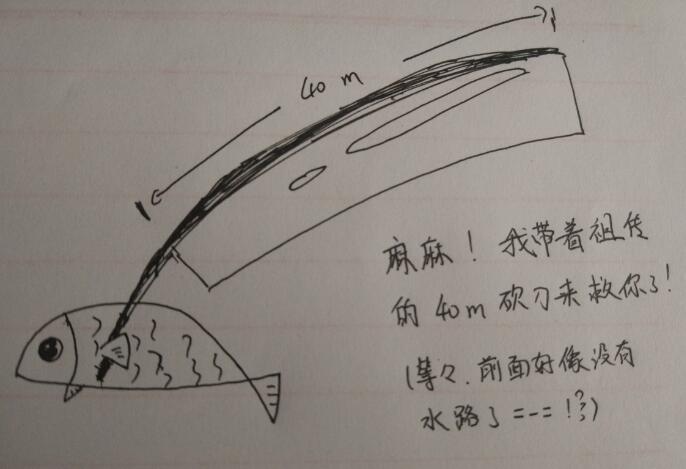 40 m
麻麻！我带着祖传
的40m砍刀来救你了！
(等々.前面好像没有
水路了=-=!?)